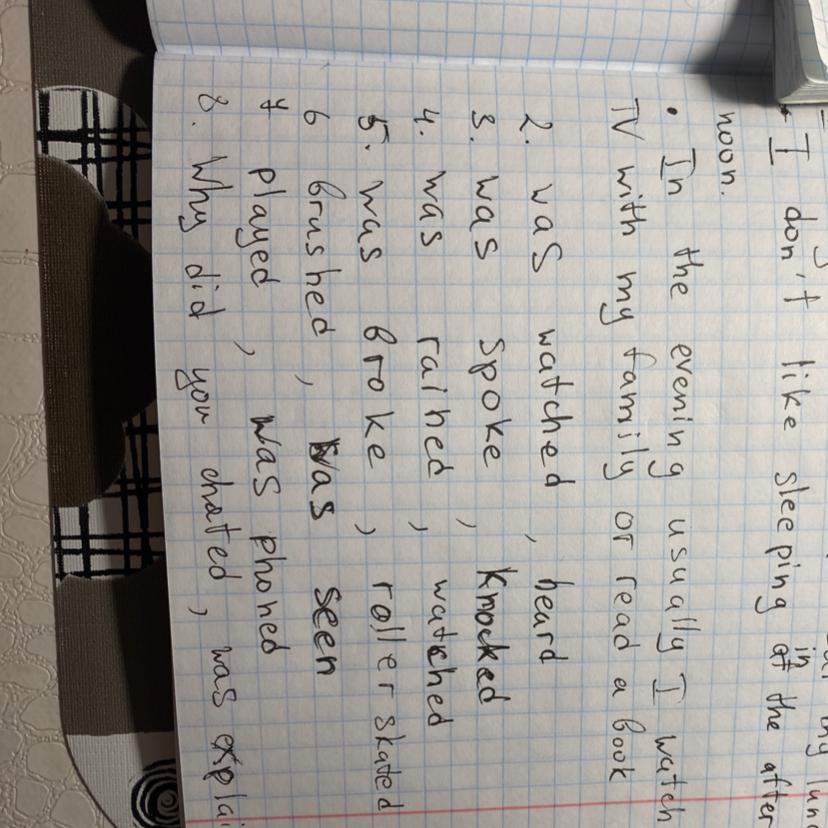 I don't like sleeping at in the after
noon.
• In the evening usually I watch
TV with my family or read a book
2. was watched, heard
3. was spoke, knocked
4. was rained, watched
5. was broke, roller skated
6 brushed, was seen
7 played, was phoned
8. Why did you chated, was explai